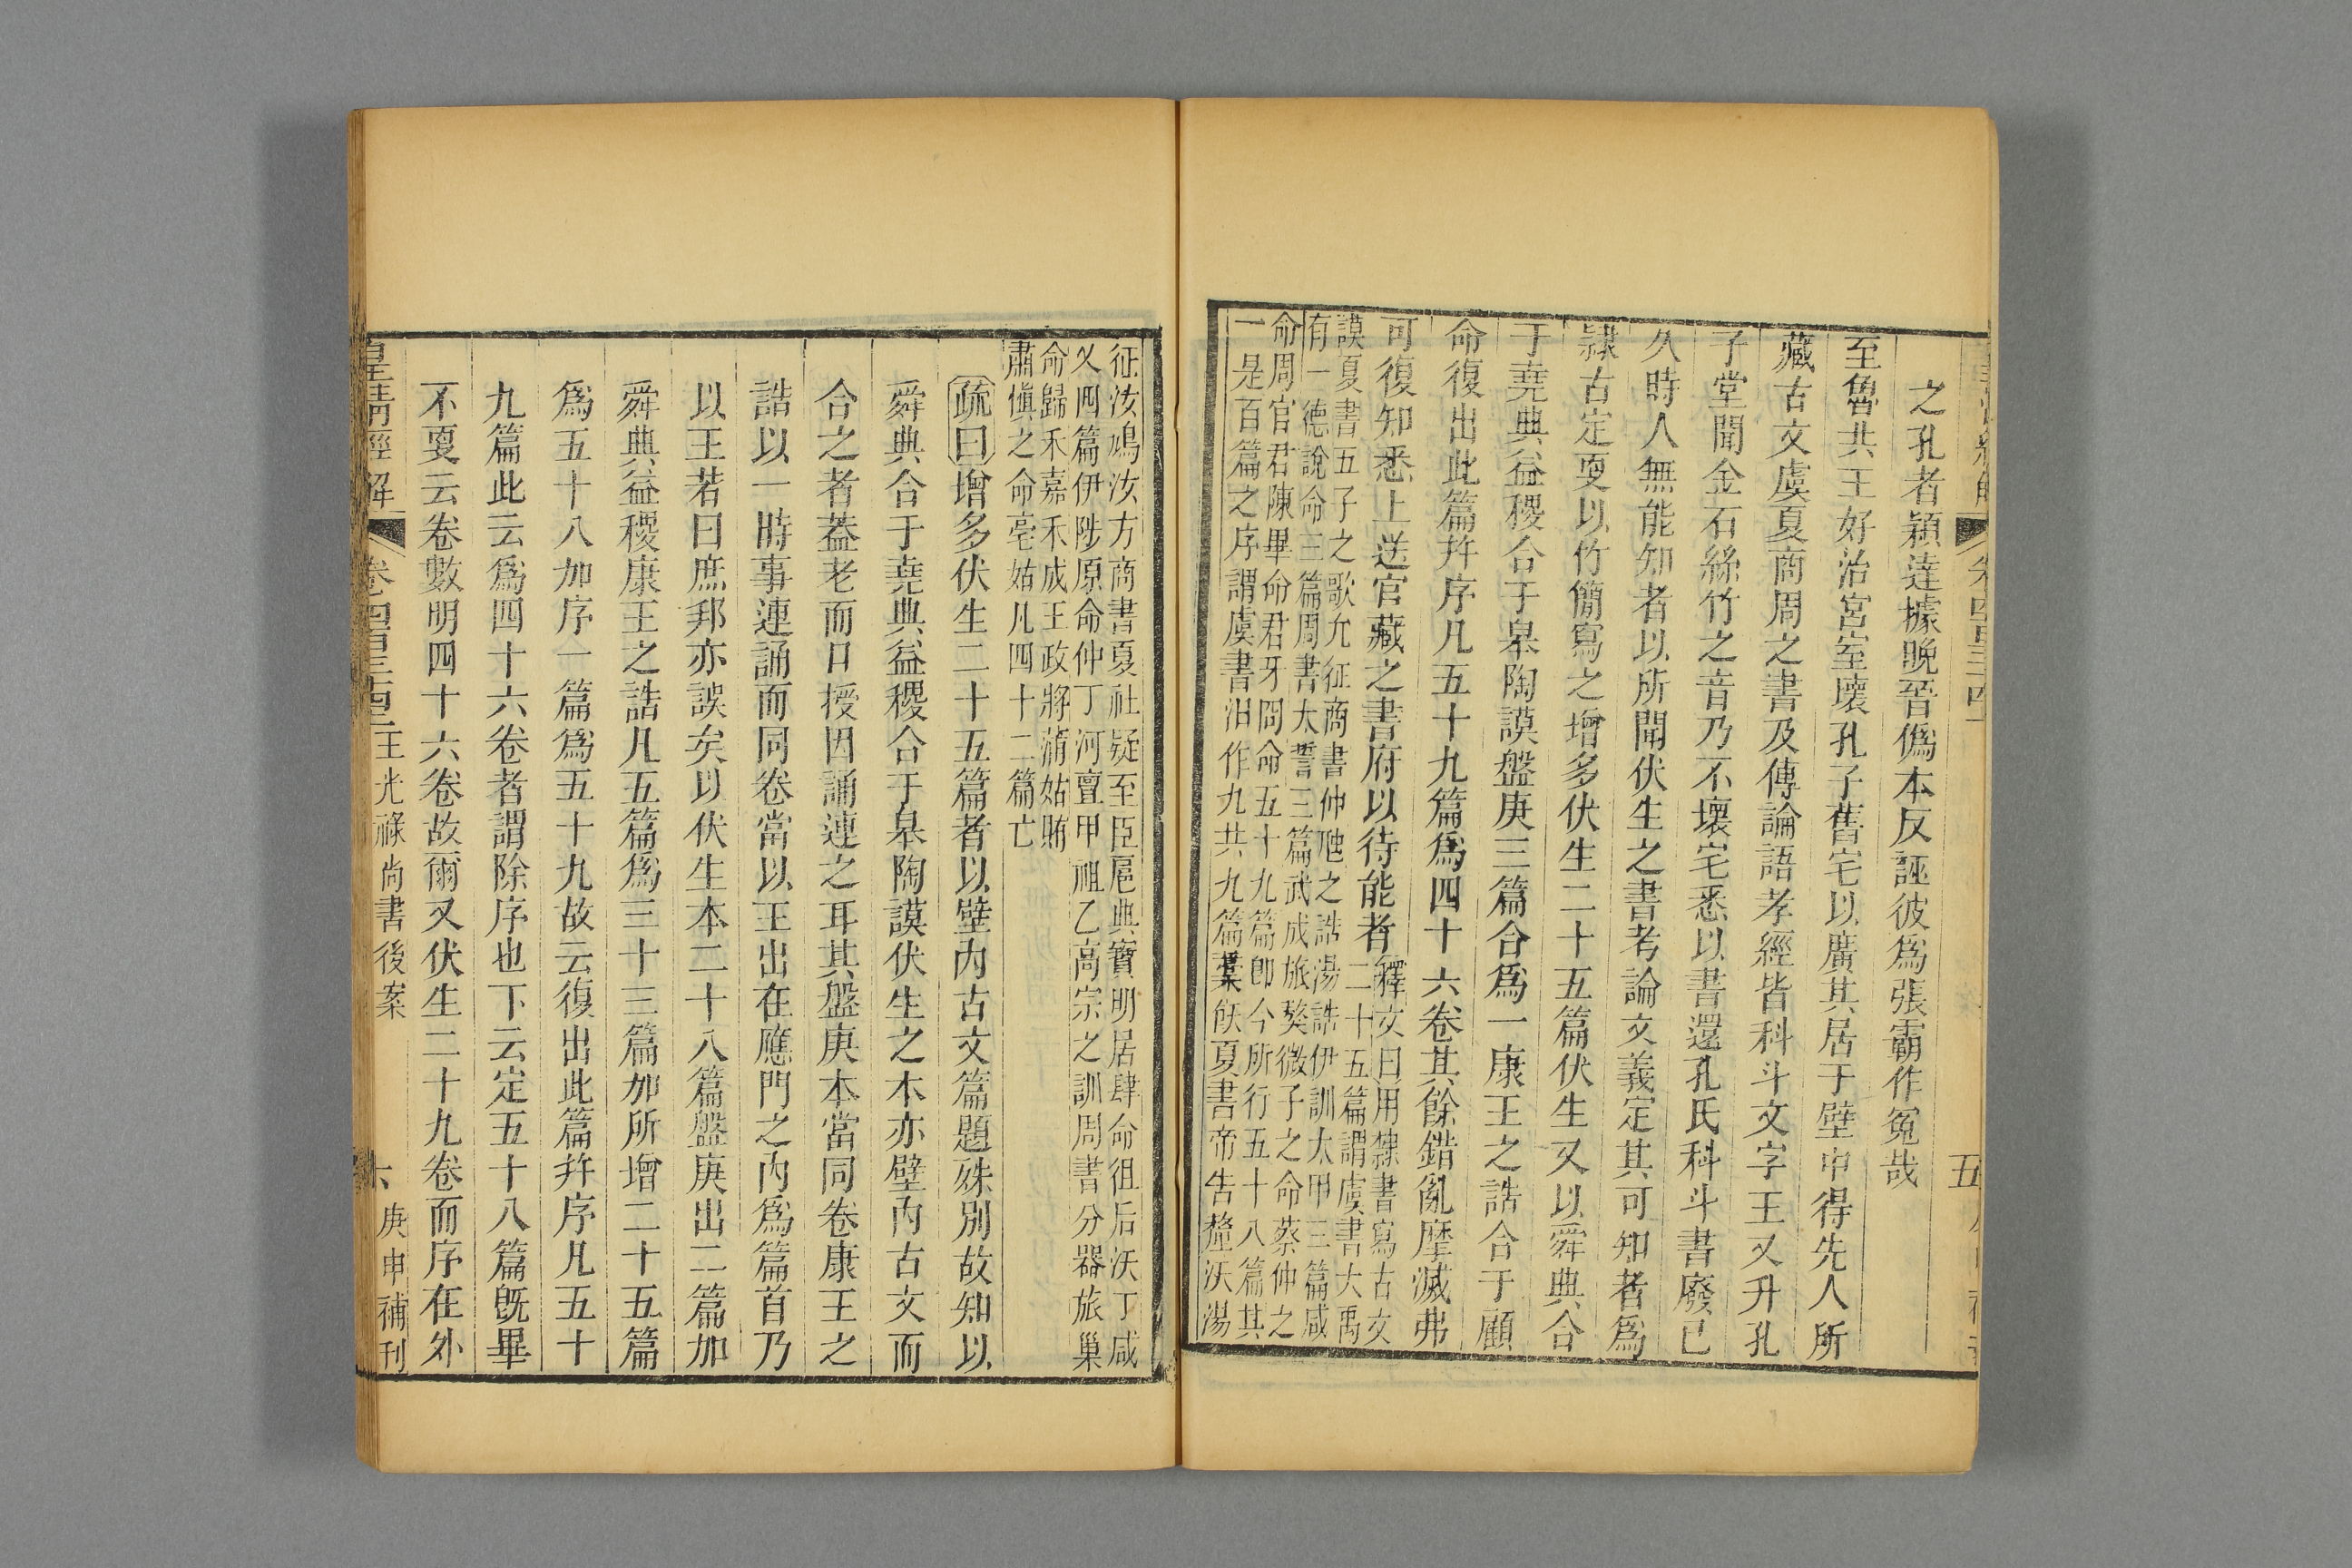 之孔者穎達據晚晉僞本反誣彼爲張霸作冤哉
至魯共王好治宮室壞孔子舊宅以廣其居于壁中得先人所
藏古文虞夏商周之書及傳論語孝經皆科斗文字王又升孔
子堂聞金石絲竹之音乃不壞宅悉以書還孔氏科斗書廢已
久時人無能知者以所聞伏生之書考論文義定其可知者爲
隸古定更以竹簡寫之增多伏生二十五篇伏生又以舜典合
于堯典益稷合于皋陶謨盤庚三篇合爲一康王之誥合于顧
命復出此篇幷序凡五十九篇爲四十六卷其餘錯亂摩滅弗
可復知悉上送官藏之書府以待能者釋文曰用隸書寫古文
二十五篇謂虞書大禹
謨夏書五子之歌允征商書仲虺之誥湯誥伊訓太甲三篇咸
有一德說命三篇周書太誓三篇武成旅獒微子之命蔡仲之
命周官君陳畢命君牙冏命五十九篇卽今所行五十八篇其
一是百篇之序謂虞書汨作九共九篇槀飫夏書帝告釐沃湯
征汝鳩汝方商書夏社疑至臣扈典寶明居肆命徂后沃丁咸
乂四篇伊陟原命仲丁河亶甲祖乙高宗之訓周書分器旅巢
命歸禾嘉禾成王政將蒲姑賄
肅愼之命亳姑凡四十二篇亡
疏曰增多伏生二十五篇者以壁內古文篇題殊別故知以
舜典合于堯典益稷合于皋陶謨伏生之本亦壁內古文而
合之者葢老而口授因誦連之耳其盤庚本當同卷康王之
誥以一時事連誦而同卷當以王出在應門之內爲篇首乃
以王若曰庶邦亦誤矣以伏生本二十八篇盤庚出二篇加
舜典益稷康王之誥凡五篇爲三十三篇加所增二十五篇
爲五十八加序一篇爲五十九故云復出此篇幷序凡五十
九篇此云爲四十六卷者謂除序也下云定五十八篇旣畢
不更云卷數明四十六卷故爾又伏生二十九卷而序在外
皇淸經解 卷四百三十四 王光祿尚書後案 六 庚申補刊